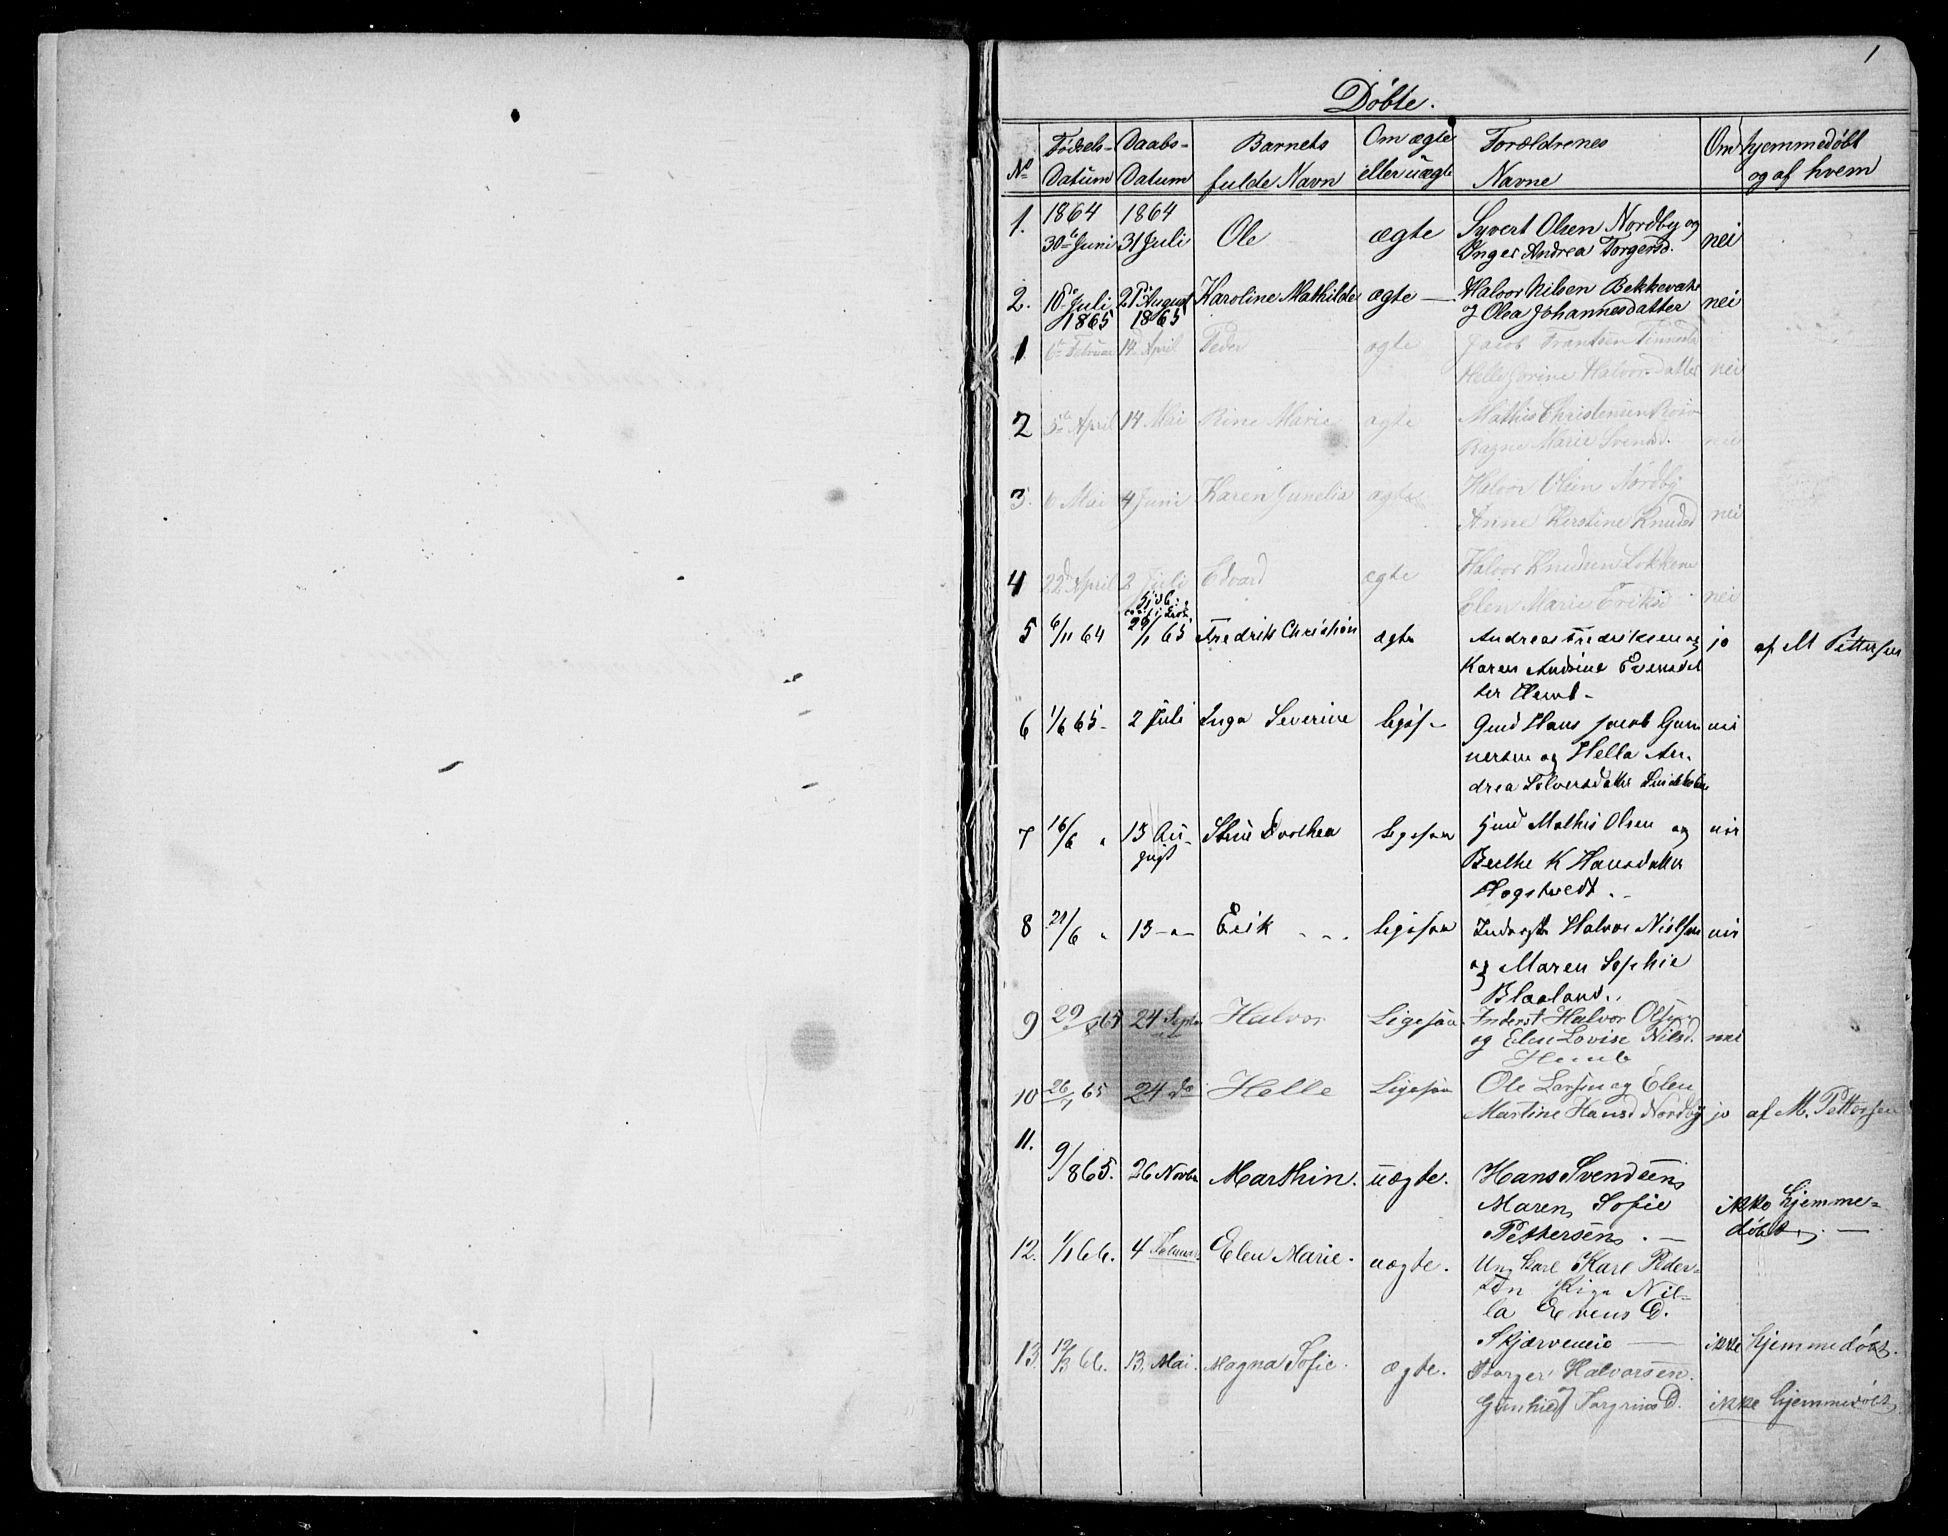 1
Døbte.
No Fødsels-Datum Daabs-Datum Barnets fulde Navn Om ægte eller uægte Forældrenes Navne Om hjemmedøbt og af hvem
1. 1864 30te Juni 1864 31 Juli Ole ægte Syvert Olsen Nordby og
Inger Andrea Torgersd. nei
2. Juli August Karoline Mathilde ægte — Halvor Nilsen
og Olea Johannesdatter nei
1865 1865
1 6te Februar April Peder ægte Jacob Frantsen
Helle Jorine Halvorsdatter nei
2 5te April 14 Mai Rine Marie ægte Mathis Christensen
Ragne Marie Svensd. nei
3. 6 Mai 4 Juni Karen Gunelia ægte Halvor Olsen Nordby
Anne Kirstine Knudsd nei
4 22de April 2 Juli Edvard ægte Halvor Knudsen Løkkene
Elen Marie Eriksd nei
5 6/11 64 65 Fredrik Christian ægte Andreas Fredriksen og jo af M Pettersen
Karen Andrine Evensdat
ter Hemb -
6 1/6 65 - 2 Juli Inga Severine ligesaa - Gmd Hans Jacob Gun nei
nersen og Hella An-
drea Solversdatter
7 16/6 " 13 Au-
gust Stine Dorthea Ligesaa Gmd Mathis Olsen og nei
Berthe K Hansdatter
Hogstvedt . -
8 21/6 " 13 - " - Erik - - - Ligesaa Inderst Halvor Nielsen nei
og Maren Sophie
Blaaland.
9 29/8 65 24 Septbr Halvor Ligesaa Inderst Halvor Olsen
og Elen Lovise Nilsd. nei
Hemb
10 26/7 65 24 do Helle Ligesaa Ole Larsen og Elen
Martine Hansd Nordby jo af M. Pettersen
11. 9/8 65. 26 Novbr Marthin. uægte. Hans Svendsen
Maren Sofie ikke hjemme-
Pettersen. — døbt. —
12. 1/1 66. 4 Februar Elen Marie. uægte. Ungkarl Karl Peder-
sen Pige Nil-
la Evens D.
Skjærveneie — ikke hjemmedøbt.
13. 12/3 66. 13. Mai. Magna Sofie. ægte. Torger Halvorsen.
Gunhild Torgrims D. ikke hjemmedøbt